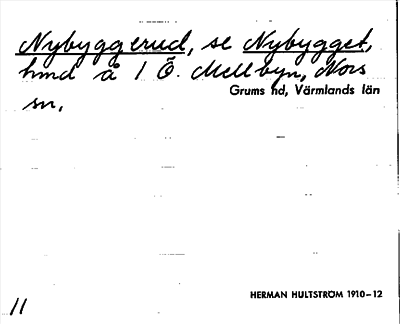 Nybyggerud, se Nybygget,
hmd å 1 Ö. Mellbyn, Nors
sn.
Grums hd, Värmlands län
HERMAN HULTSTRÖM 1910–12
11